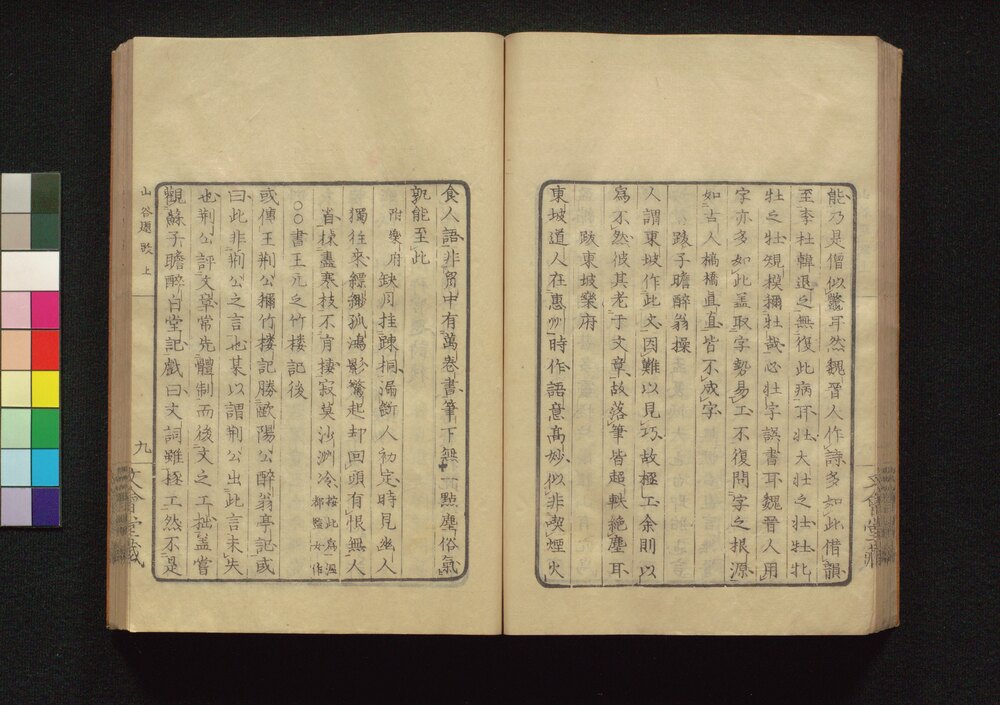 能乃是僧似鱉耳然魏晉人作詩多如此借韻
至李杜韓退之無復此病耳壮大壮之壮牡牝
牡之牡規模彌牡哉心壮字誤書耳魏晉人用
字亦多如此盖取字勢易工不復問字之根源
如古人槁橋直直皆不成字
跋子瞻醉翁操
人謂東坡作此文因難以見巧故極工余則以
為不然彼其老于文章故落筆皆超軼絶塵耳
跋東坡樂府
東坡道人在惠州時作語意高妙似非喫煙火
食人語非胷中有萬卷書筆下無一點塵俗氣
孰能至此
附樂府 缺月挂踈桐漏斷人初定時見幽人
獨往來縹緲孤鴻影驚起却回頭有恨無人
省棎盡寒枝不肯棲寂莫沙洲冷 按此為温都監女作
〇〇書王元之竹樓記後
或傳王荆公稱竹樓記勝歐陽公醉翁亭記或
曰此非荆公之言也某以謂荆公出此言未失
也荆公評文章常先體制而後文之工拙盖嘗
觀蘇子瞻醉白堂記戲曰文詞雖極工然不是
山谷題跋 上
九